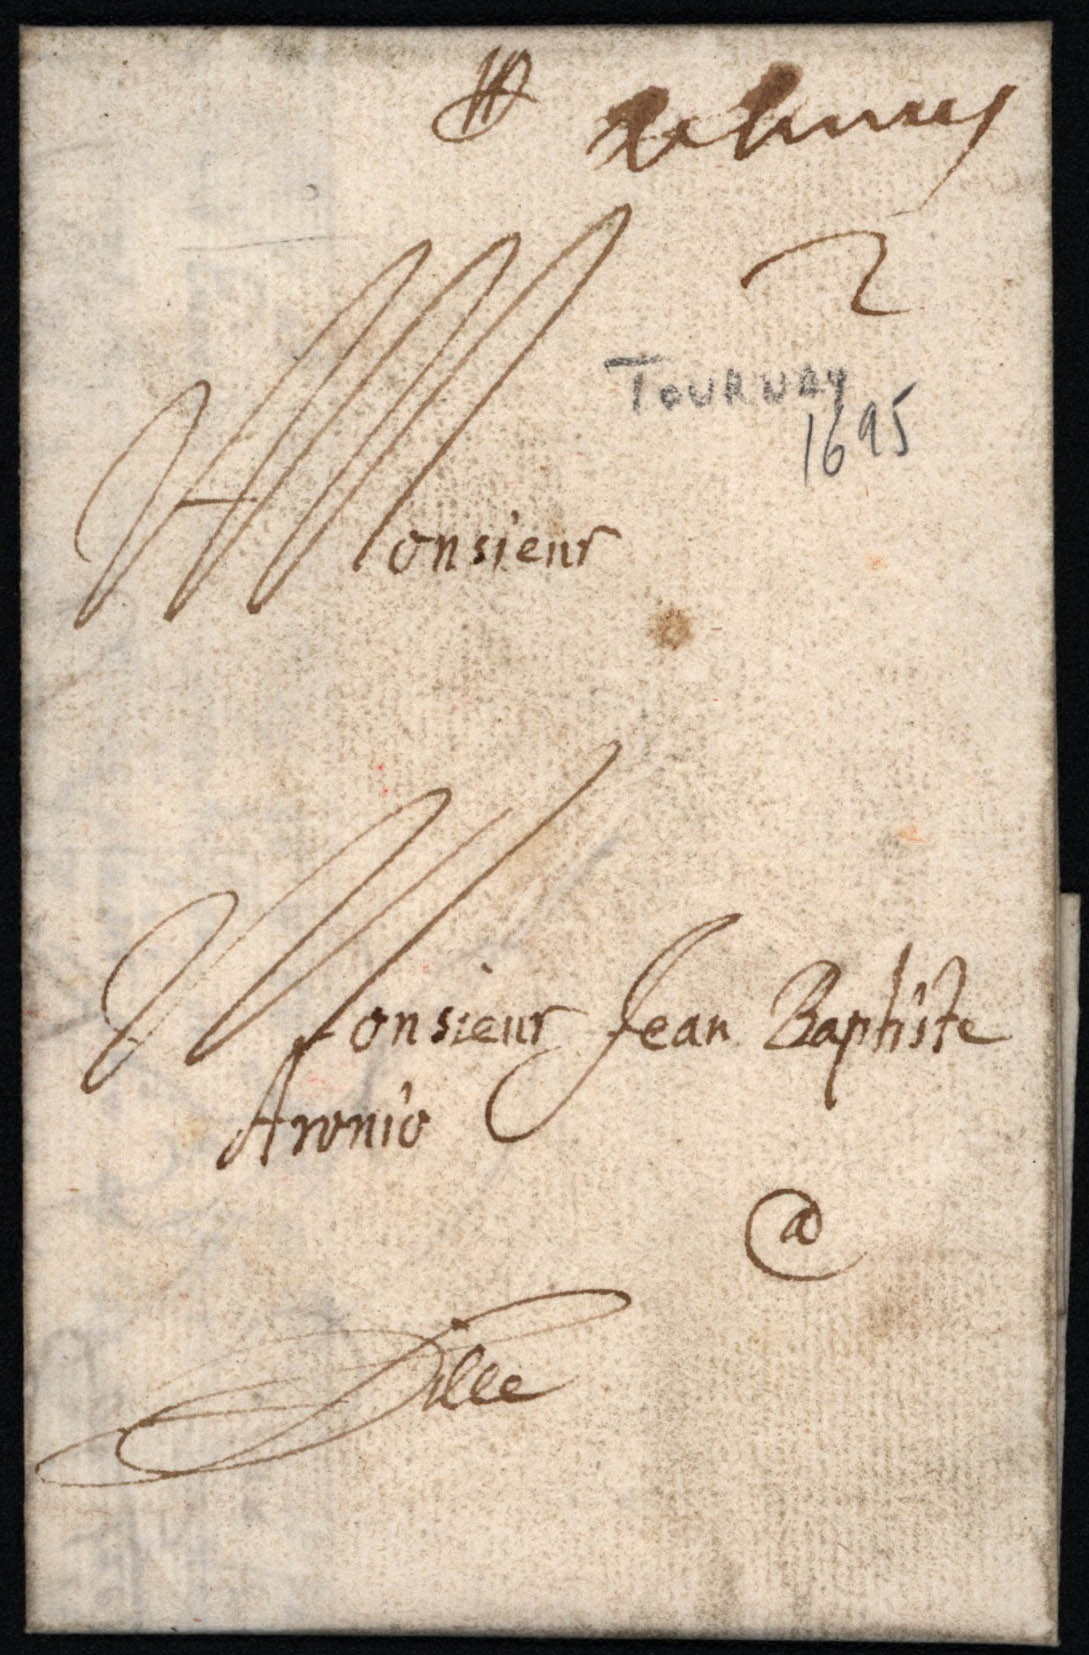 2
TOURNAY
1695
Monsieur
Monsieur Jean Baptiste
Aronio
@
Lille